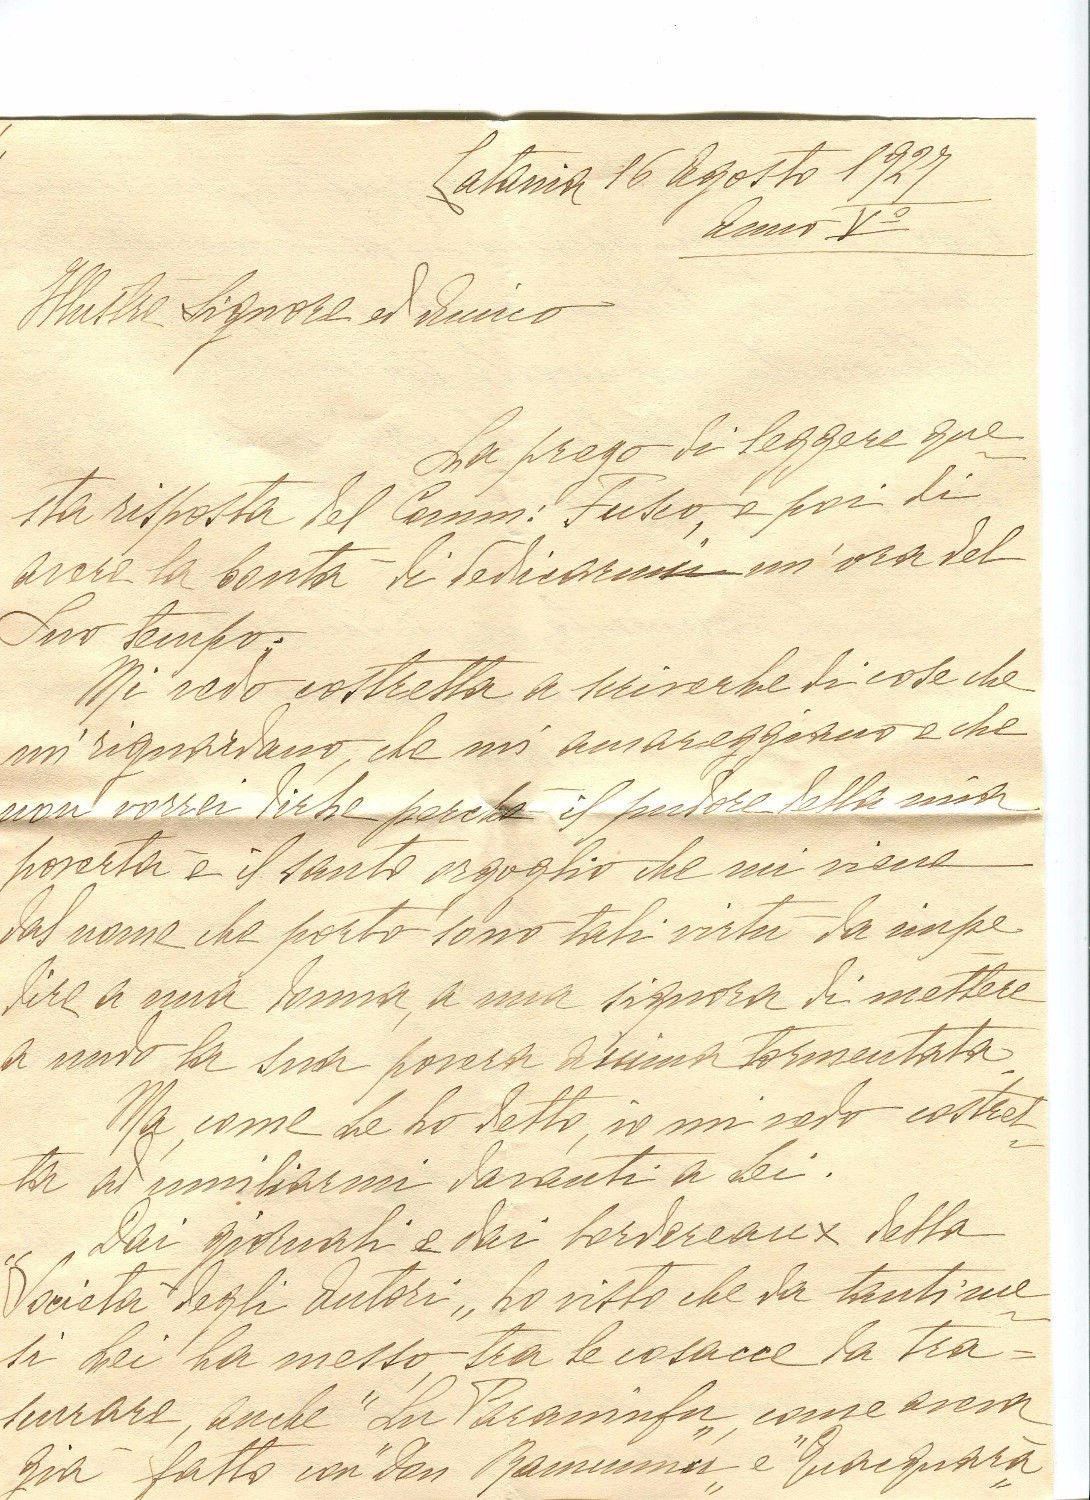 Catania 16 Agosto 1927
Anno V°
Illustre Signore ed Amico
La prego di leggere que-
sta risposta del Comm: Fusco, e poi di
avere la bontà di dedicarmi un'ora del
Suo tempo:
Mi vedo costretta a scriverLe di cose che
mi riguardano, che mi amareggiano e che
non vorrei dirLe perchè il pudore della mia
povertà e il santo orgoglio che mi viene
dal nome che porto sono tali virtù da impe
dire a una donna, a una signora di mettere
a nudo la sua povera anima tormentata.
Ma, come Le ho detto, io mi vedo costret-
ta ad umiliarmi davanti a Lei.
Dai giornali e dai bordereaux della
"Società degli Autori„ ho visto che da tanti me-
si Lei ha messo, tra le cosacce da tra=
scurare, anche "Lu Paraninfu„, come aveva
già fatto con "Don Ramunnu„ e "Quaquarà„